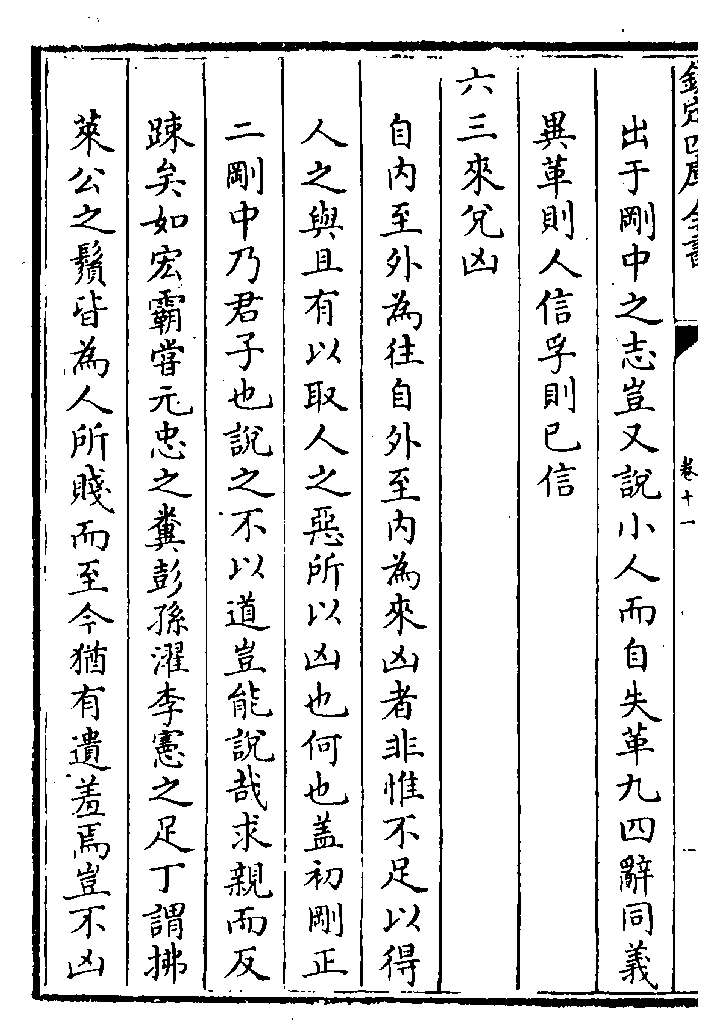 欽定四庫全書
卷十一
出于剛中之志豈又說小人而自失革九四辭同義
異革則人信孚則已信
六三來兊凶
自内至外為往自外至内為來凶者非惟不足以得
人之與且有以取人之惡所以凶也何也盖初剛正
二剛中乃君子也說之不以道豈能說哉求親而反
踈矣如宏霸嘗元忠之糞彭孫濯李憲之足丁謂拂
萊公之鬚皆為人所賤而至今猶有遺羞焉豈不凶